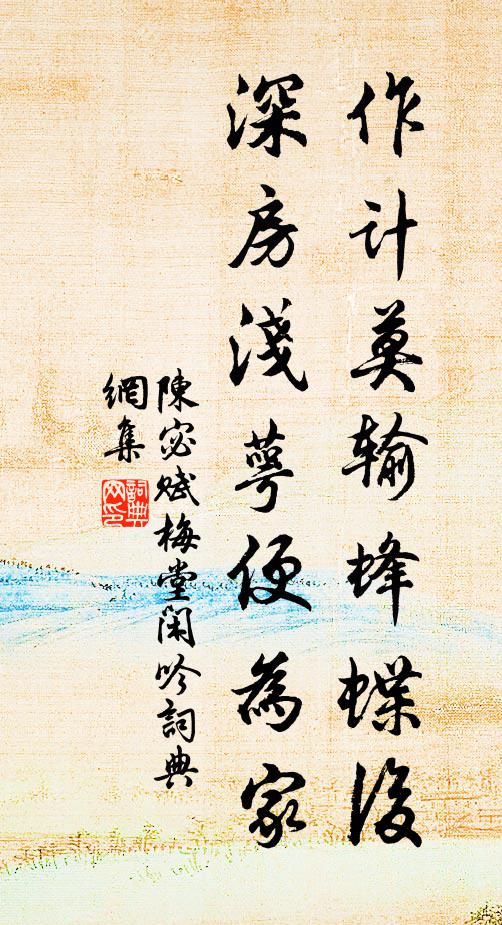 作计莫输蜂蝶後
深房淺萼便為家
陳宓賦梅堂闲吟詞典
網集
詞典網印